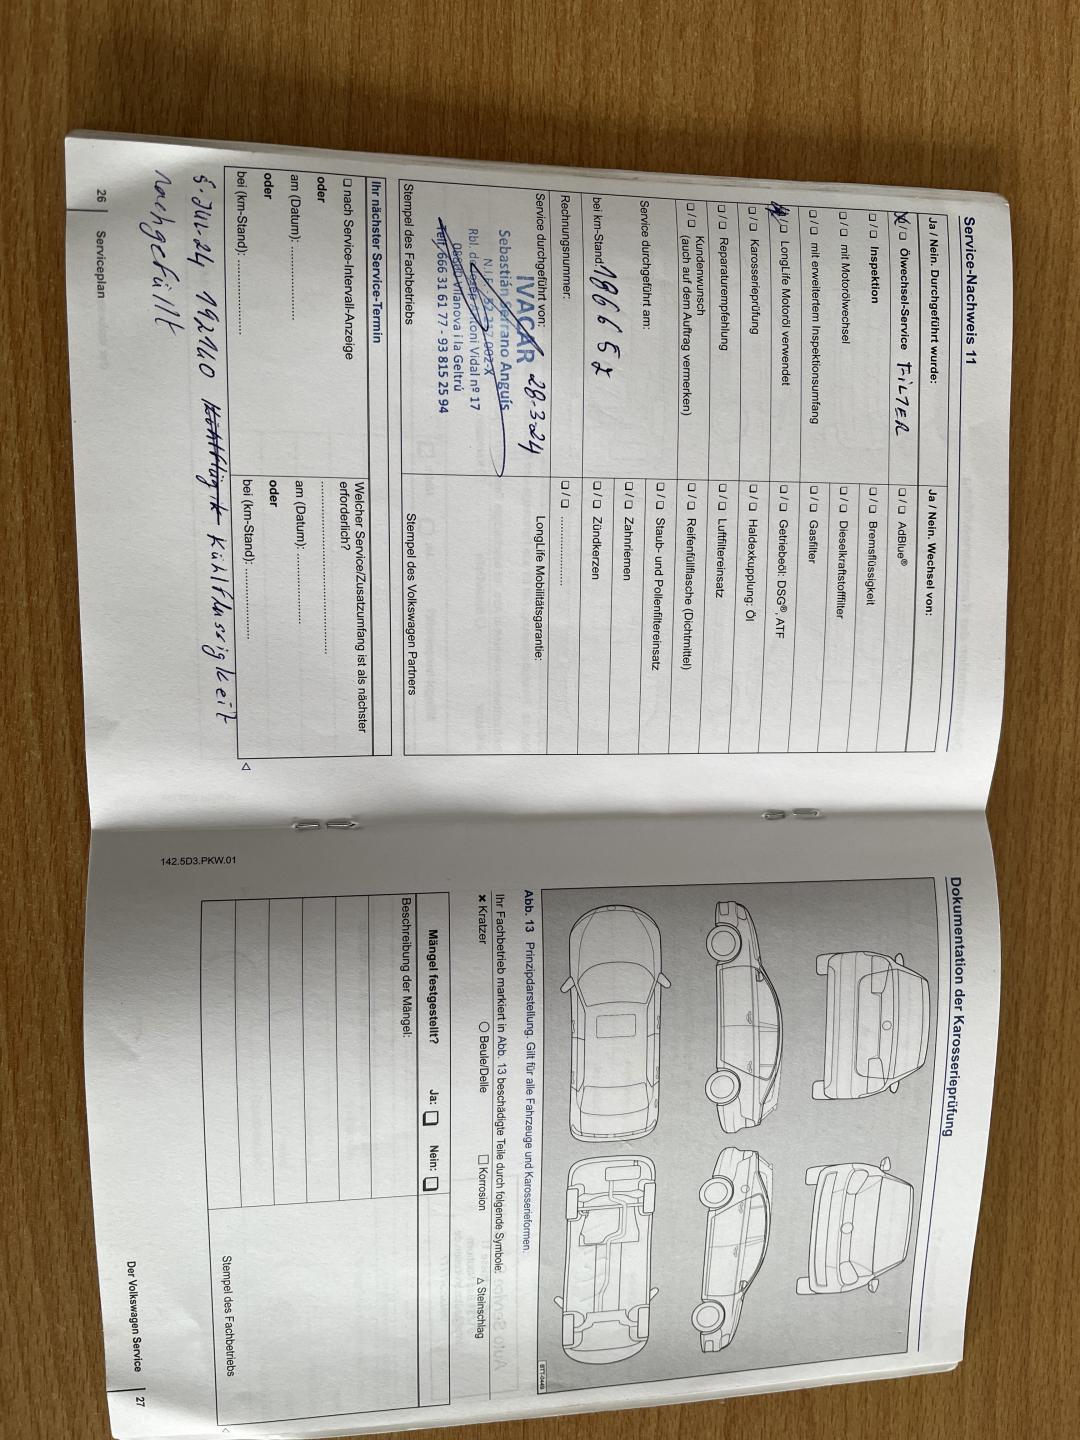 Service-Nachweis 11
Ja / Nein. Durchgeführt wurde:
Ja / Nein. Wechsel von:
☒ / ☐ Ölwechsel-Service FILTER
☐ / ☐ AdBlue®
☐ / ☐ Inspektion
☐ / ☐ Bremsflüssigkeit
☐ / ☐ mit Motorölwechsel
☐ / ☐ Dieselkraftstofffilter
☐ / ☐ mit erweitertem Inspektionsumfang
☐ / ☐ Gasfilter
☒ / ☐ LongLife Motoröl verwendet
☐ / ☐ Getriebeöl: DSG®, ATF
☐ / ☐ Karosserieprüfung
☐ / ☐ Haldexkupplung: Öl
☐ / ☐ Reparaturempfehlung
☐ / ☐ Luftfiltereinsatz
☐ / ☐ Kundenwunsch
(auch auf dem Auftrag vermerken)
☐ / ☐ Reifenfüllflasche (Dichtmittel)
Service durchgeführt am:
☐ / ☐ Staub- und Pollenfiltereinsatz
☐ / ☐ Zahnriemen
bei km-Stand: 186652
☐ / ☐ Zündkerzen
Rechnungsnummer:
☐ / ☐ ....................
Service durchgeführt von:
LongLife Mobilitätsgarantie:
IVACAR 28-3-24
Sebastián Serrano Anguís
N.I.F.:
Rbl. d. Josep Antoni Vidal nº 17
08800 Vilanova i la Geltrú
Telf. 666 31 61 77 - 93 815 25 94
Stempel des Fachbetriebs
Stempel des Volkswagen Partners
Ihr nächster Service-Termin
☐ nach Service-Intervall-Anzeige
Welcher Service/Zusatzumfang ist als nächster
erforderlich?
oder
am (Datum): ....................
am (Datum): ....................
oder
oder
bei (km-Stand): ....................
bei (km-Stand): ....................
JUL-24 192140 Kühlflüssigkeit
nachgefüllt
26 Serviceplan
Dokumentation der Karosserieprüfung
BTT-0449
Abb. 13 Prinzipdarstellung. Gilt für alle Fahrzeuge und Karosserieformen.
Ihr Fachbetrieb markiert in Abb. 13 beschädigte Teile durch folgende Symbole:
✖ Kratzer ○ Beule/Delle □ Korrosion △ Steinschlag
Mängel festgestellt? Ja: ☐ Nein: ☐
Beschreibung der Mängel:
Stempel des Fachbetriebs
142.5D3.PKW.01
Der Volkswagen Service 27